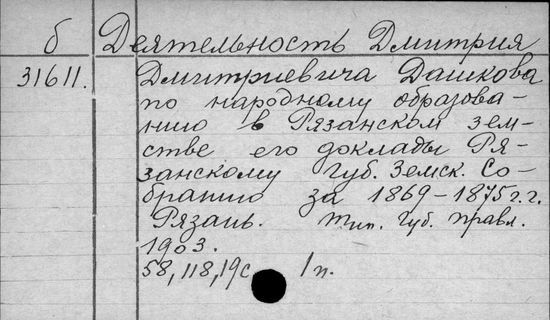 б Деятельность Дмитрия
31611. Дмитриевича Дашкова
по народному образова-
нию в Рязанском зем-
стве его доклады Ря-
занскому Губ. Земск. Со-
бранию за 1869-1875 г.г.
Рязань. Тип. Губ. Правл.
1903.
58, 118, 19 с. 1 п.